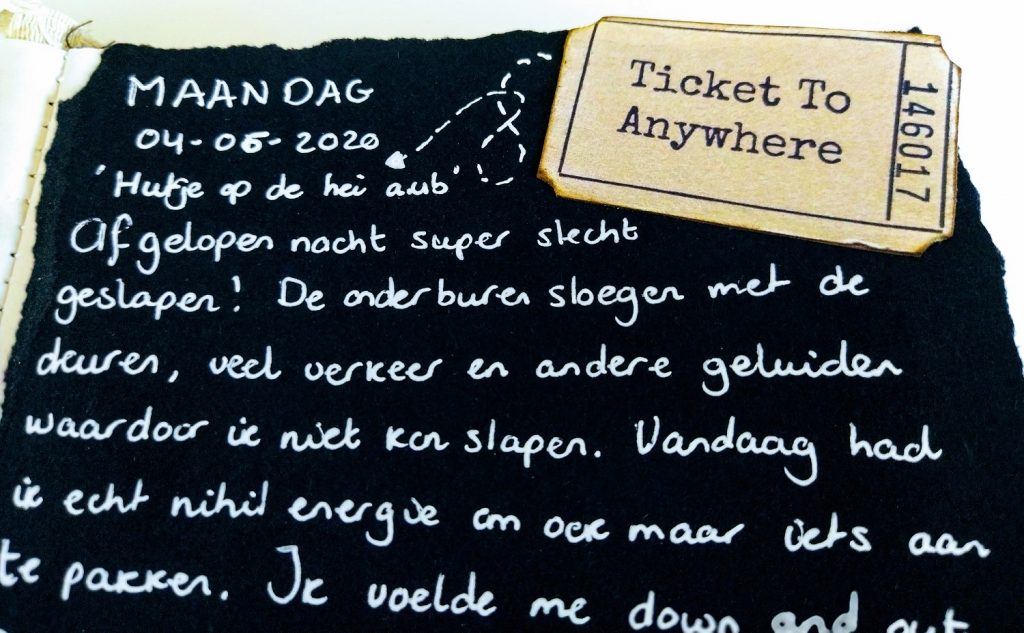 MAANDAG
04-05-2020
'Hutje op de hei a.u.b'
Ticket To
Anywhere
146017
Afgelopen nacht super slecht
geslapen! De onderburen sloegen met de
deuren, veel verkeer en andere geluiden
waardoor ik niet kon slapen. Vandaag had
ik echt nihil energie om ook maar iets aan
te pakken. Ik voelde me down and out